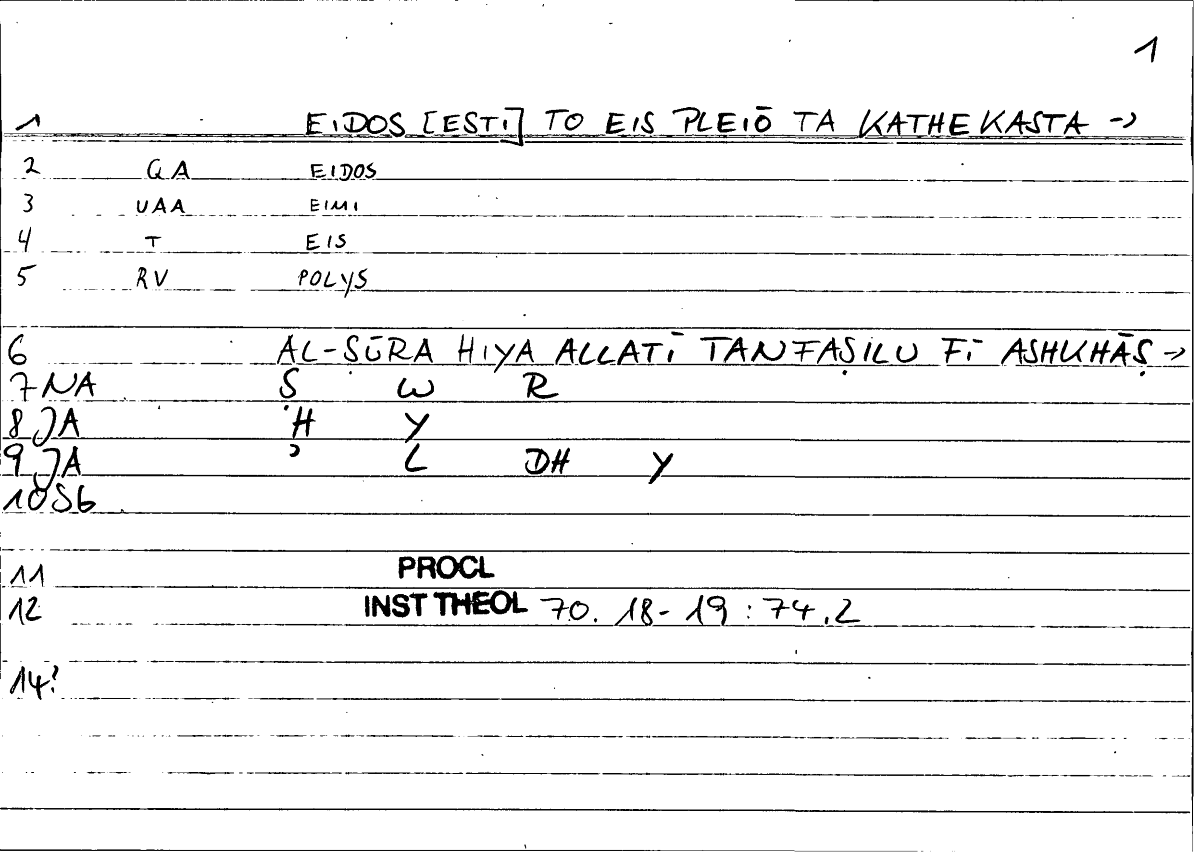 1
1 EIDOS [ESTI] TO EIS PLEIŌ TA KATHEKASTA →
2 QA EIDOS
3 UAA EIMI
4 T EIS
5 RV POLYS
6 AL-ṢŪRA HIYA ALLATĪ TANFAṢILU FĪ ASHKHĀṢ →
7 NA Ṣ W R
8 JA H Y
9 JA ʾ L DH Y
10 SG
11 PROCL
12 INST THEOL 70. 18-19 : 74.2
14?